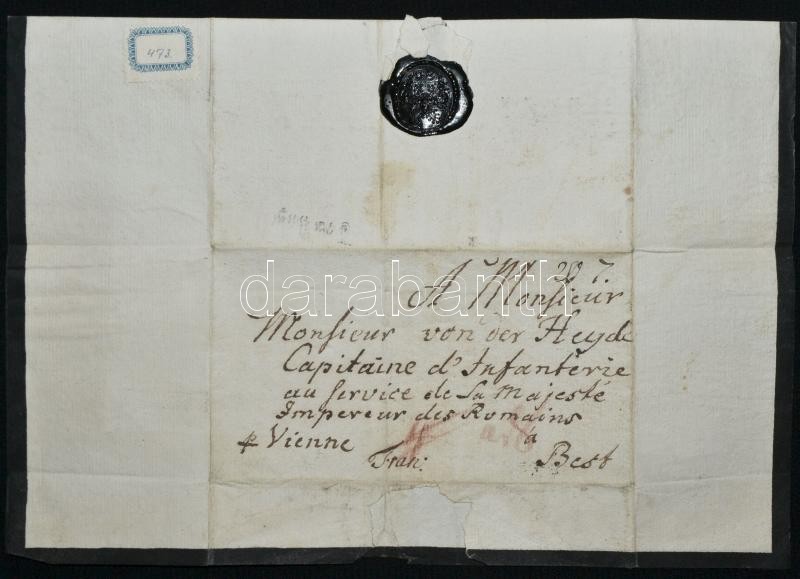 473.
darabanth
A Monsieur
Monsieur von der Heyde
Capitaine d'Infanterie
au Service de Sa Majesté
Impereur des Romains
p Vienne à
Fran: Best